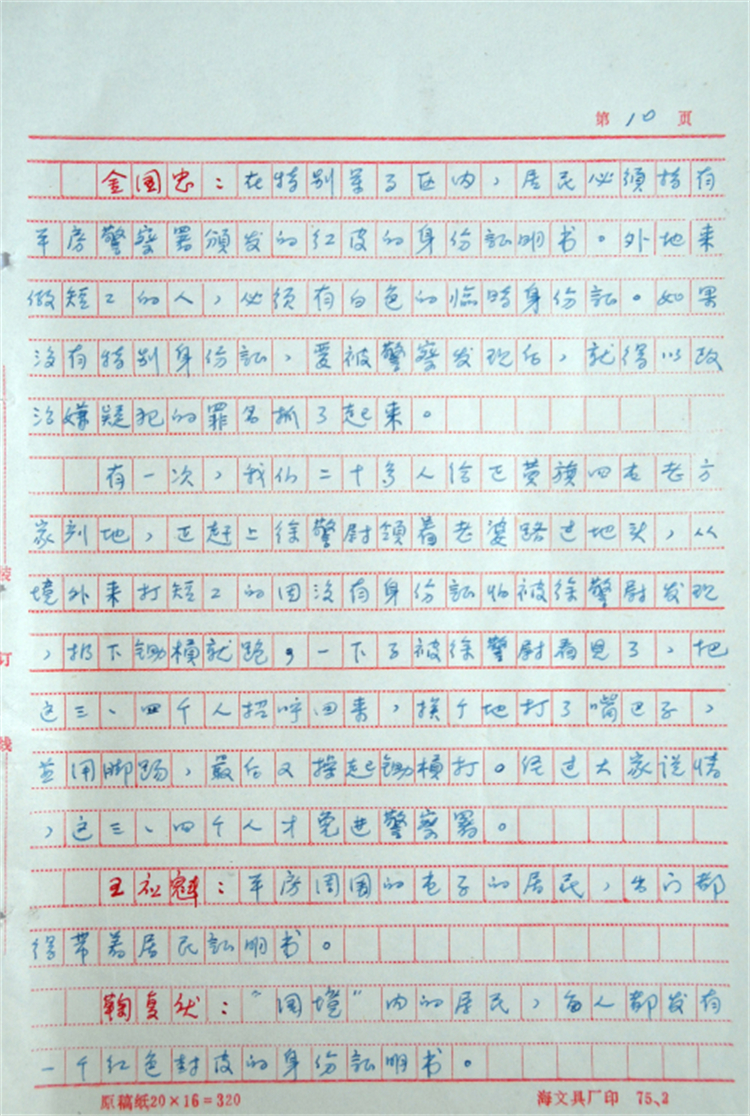 第 10 页
金国忠：在特别军了区内，居民必须持有
平房警察署颁发的红皮的身份証明书。外地来
做短工的人，必须有白色的临时身份証。如果
没有特别身份証，要被警察发现后，就得以政
治嫌疑犯的罪名抓了起来。
有一次，我们二十多人给正黄旗四屯老方
家割地，正赶上徐警尉领着老婆路过地头，从
境外来打短工的因没有身份証怕被徐警尉发现
，扔下锄槓就跑，一下子被徐警尉看见了，把
这三、四个人招呼回来，挨个地打了嘴巴子，
并用脚踢，最后又操起锄槓打。经过大家说情
，这三、四个人才免进警察署。
王 魁：平房周围的屯子的居民，出门都
得带着居民証明书。
鞠复 ："国境"内的居民，每人都发有
一个红色封皮的身份証明书。
装
订
线
原稿纸20×16=320
海文具厂印 75.2